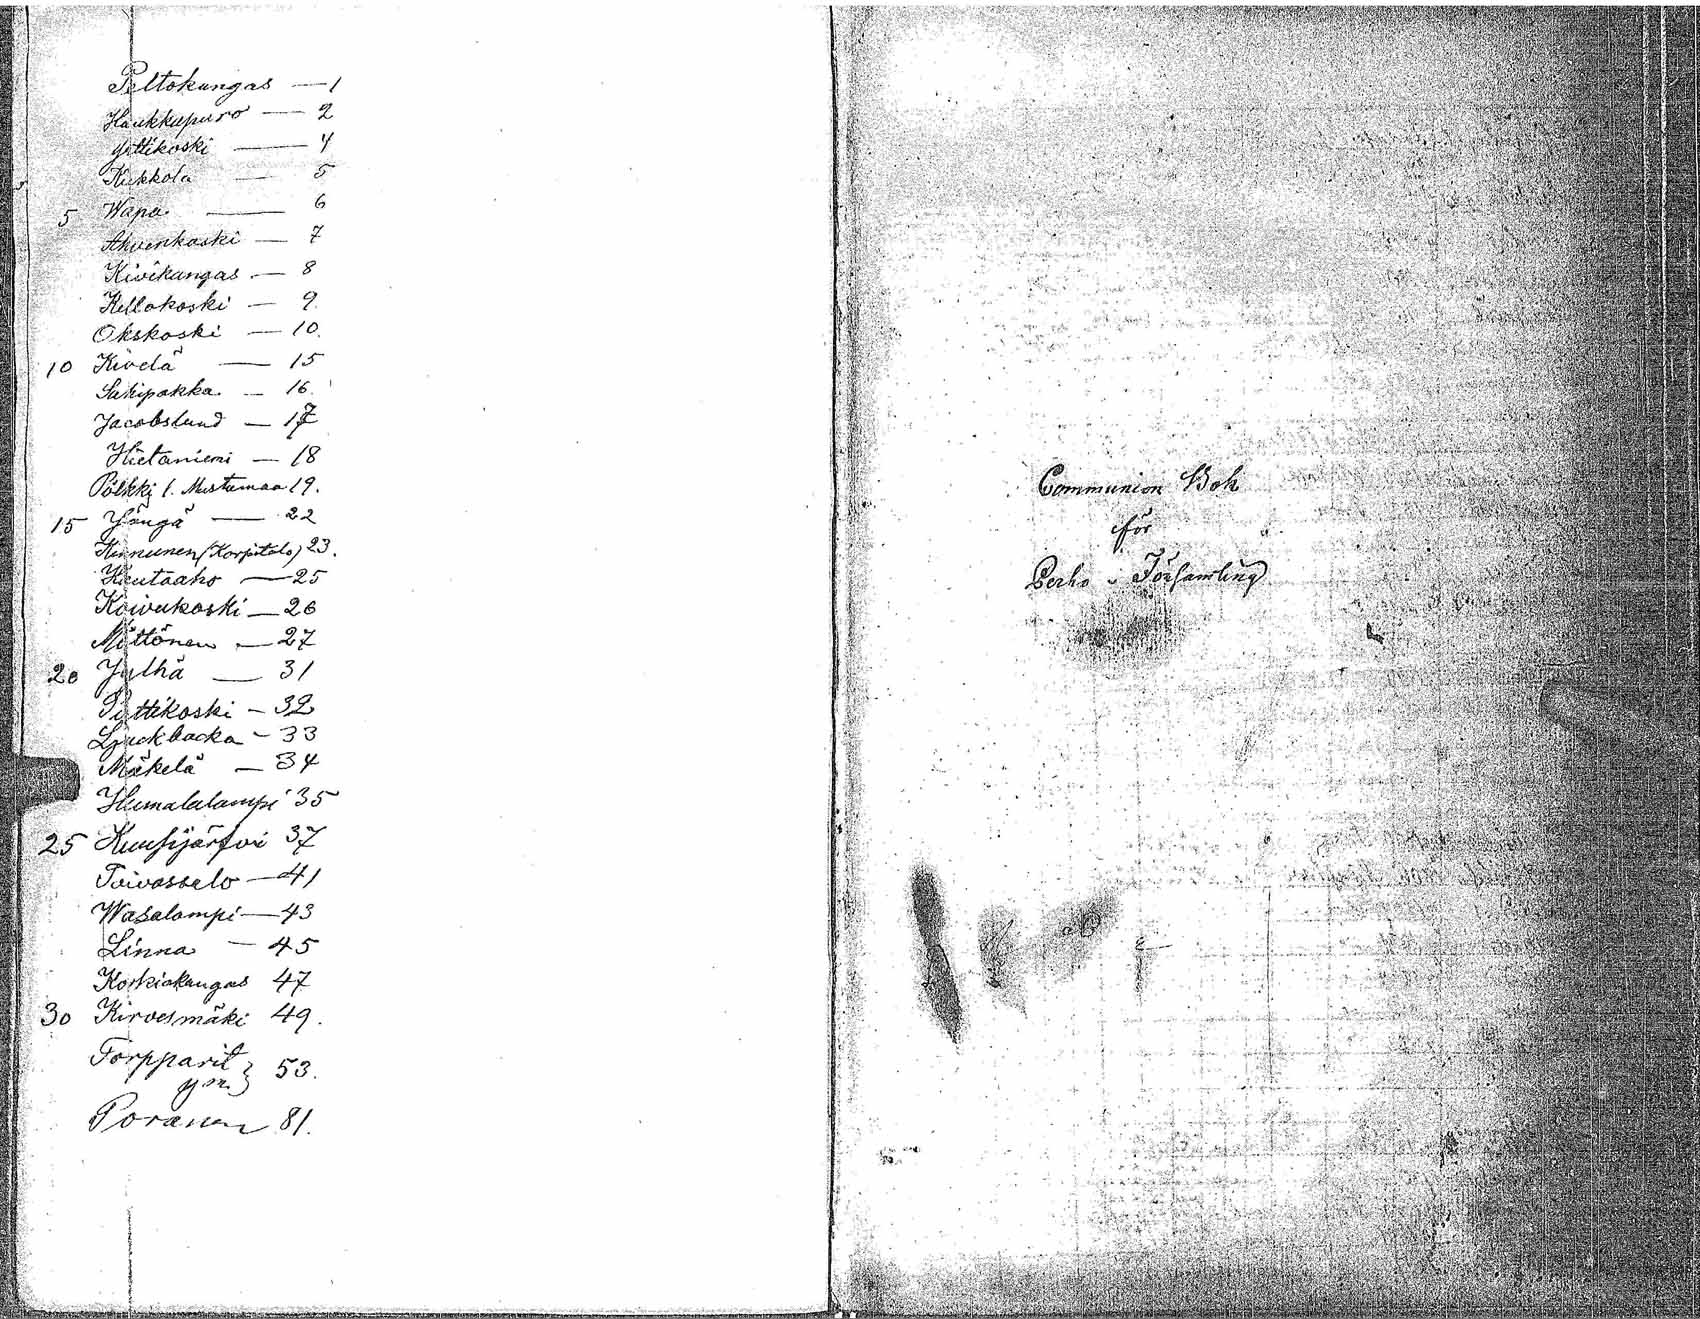 Peltokangas — 1
Haukkapuro — 2
Yöttikoski — 4
Kukkola — 5
5 Wapa — 6
Ahvenkoski — 7
Kivikangas — 8
Kellokoski — 9
Okskoski — 10.
10 Kivelä — 15
Salkipakka — 16
Jacobslund — 17
Hietaniemi — 18
Pölkki l. Mustamaa 19.
15 Jängä — 22
Kinnunen (Korpitalo) 23.
Hautaaho — 25
Koivukoski — 26
Möttönen — 27
20 Jylhä — 31
Pyttikoski — 32
Ljuckbacka — 33
Mäkelä — 34
Humalalampi 35
25 Kuusijärfvi 37
Toivassalo — 41
Wasalampi — 43
Linna — 45
Korkiakangas 47
30 Kirvesmäki 49.
Torpparit
ym. } 53.
Poranen 81.
Communion Bok
för
Perho Församling